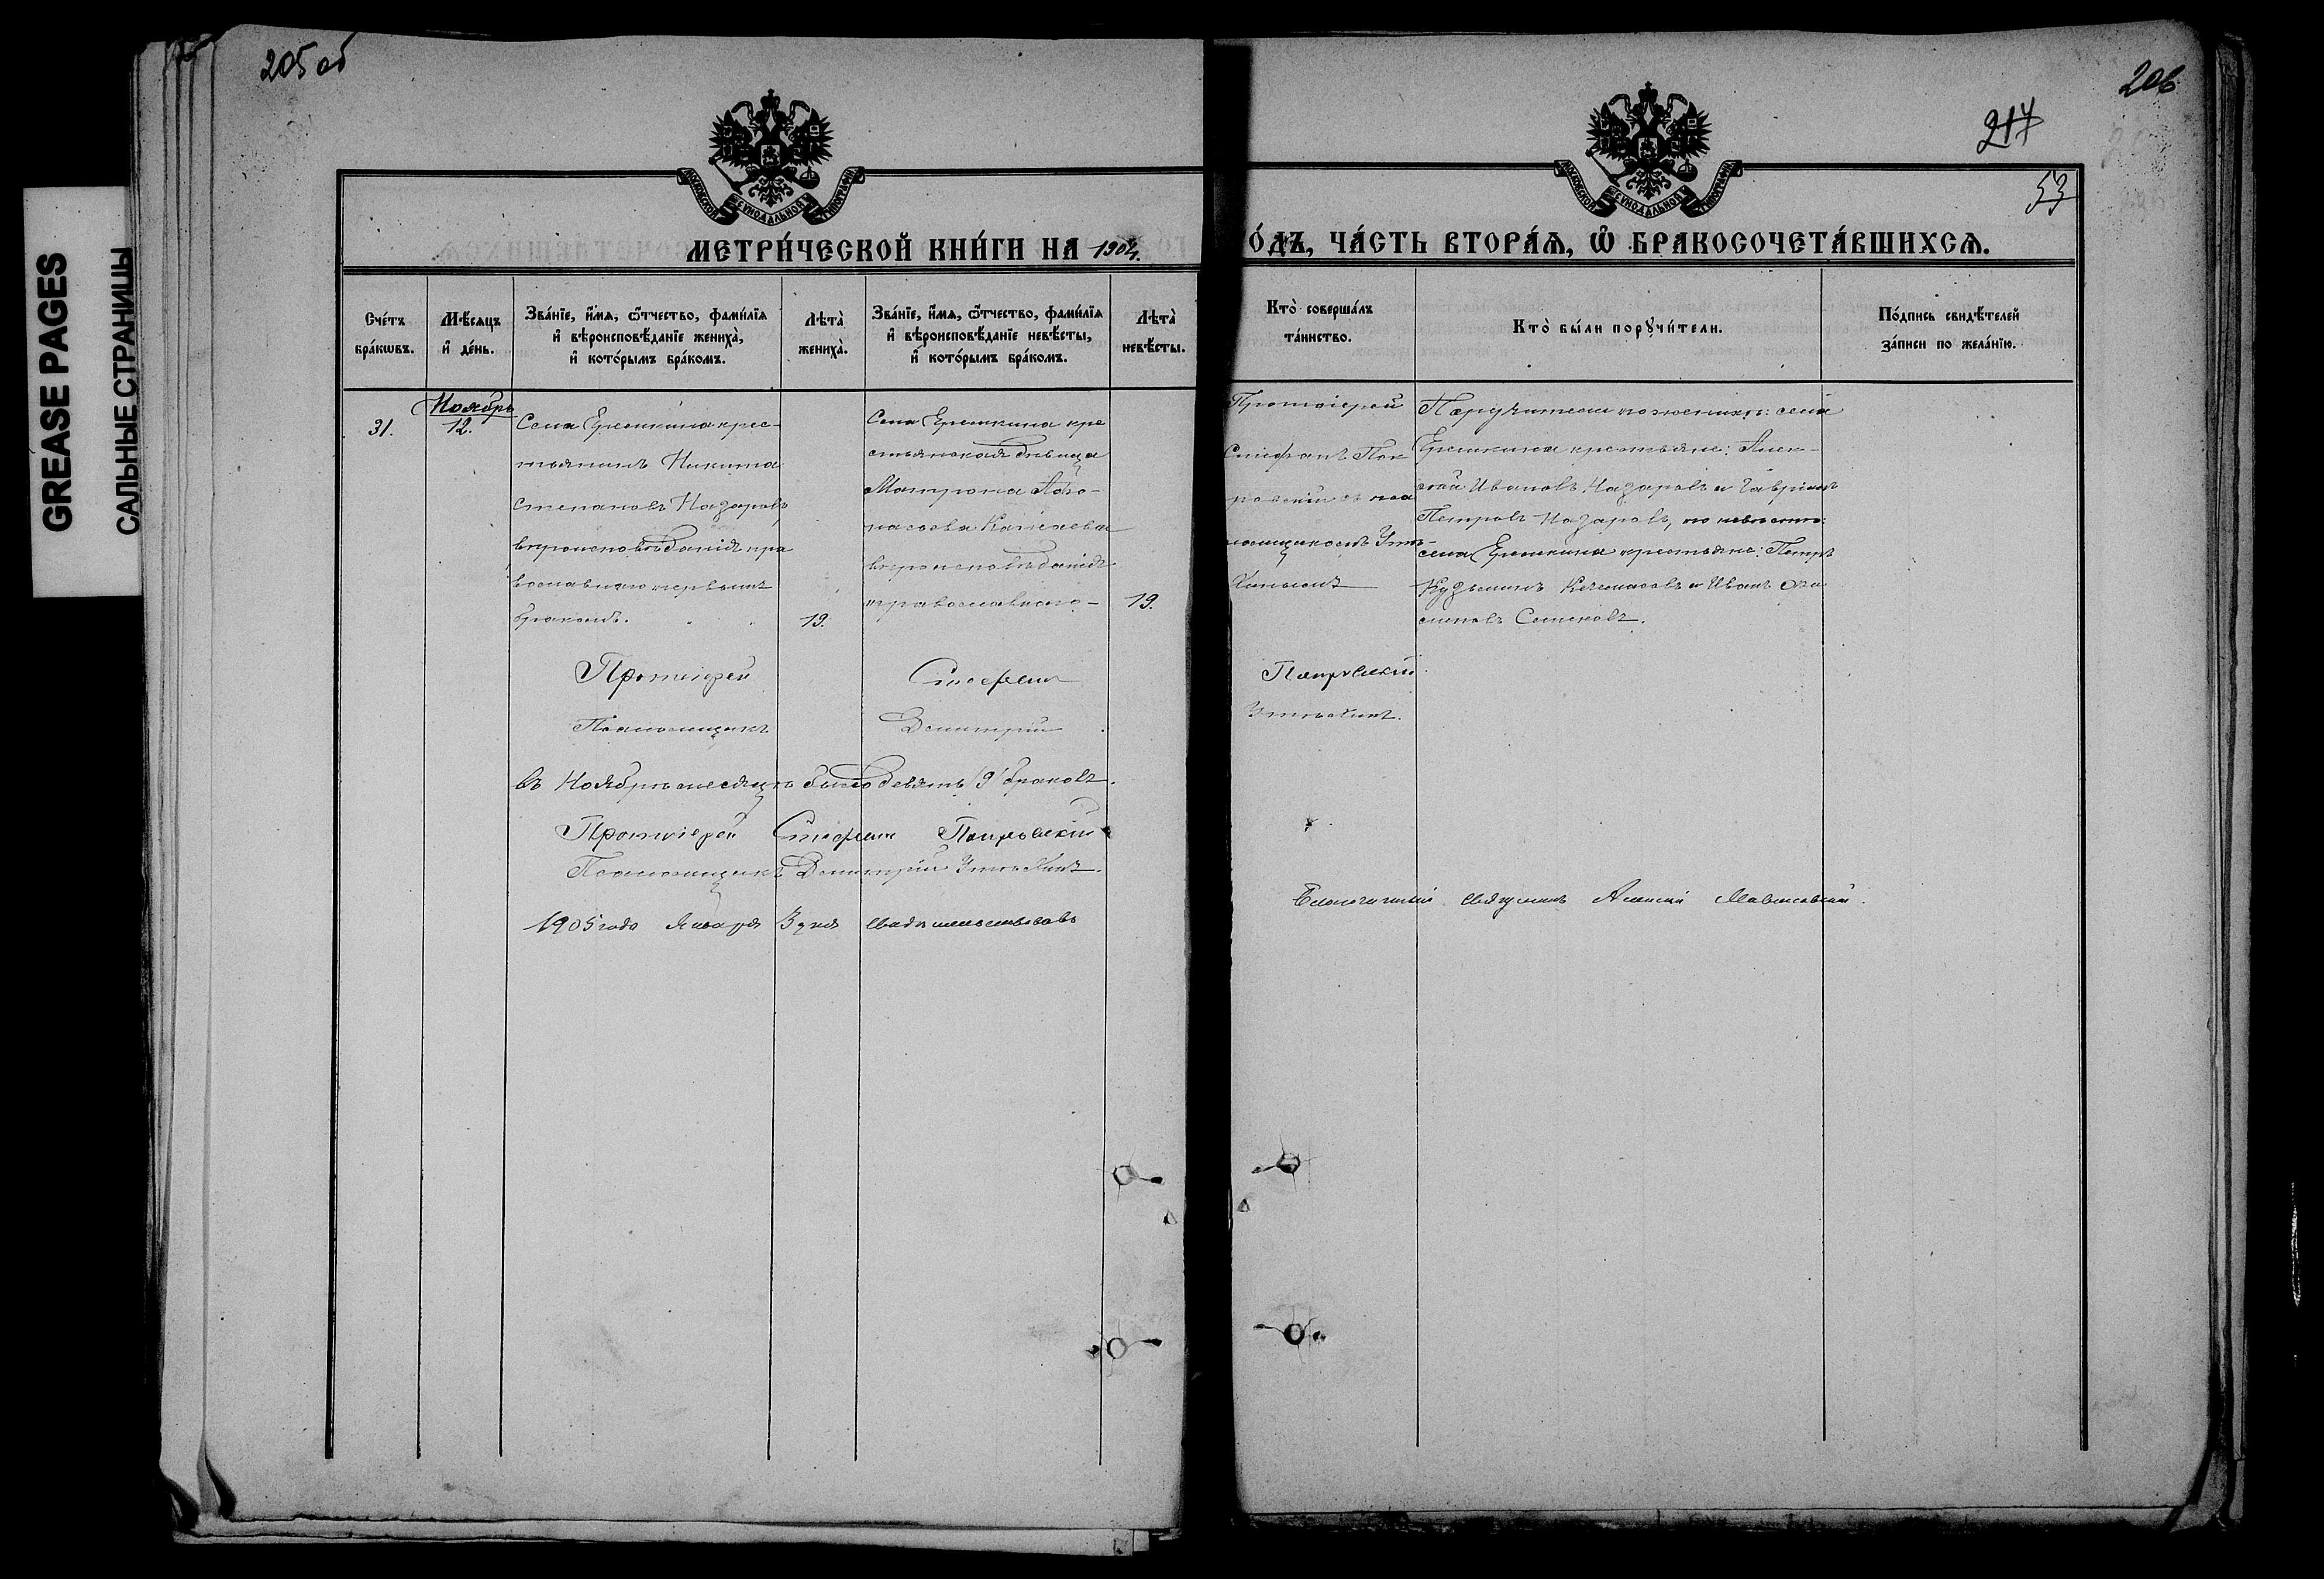 205 об
206
217
53
GREASE PAGES
САЛЬНЫЕ СТРАНИЦЫ
МОСКОВСКОЙ СѴНОДАЛЬНОЙ ТИПОГРАФІИ
МОСКОВСКОЙ СѴНОДАЛЬНОЙ ТИПОГРАФІИ
МЕТРИ́ЧЕСКОЙ КНИ́ГИ НА 1904
О́ДЪ, ЧА́СТЬ ВТОРА́Ѧ, Ѽ БРАКОСОЧЕТА́ВШИХСѦ.
Сче́тъ бра́кѡвъ.
Мѣ́сѧцъ и҆ де́нь.
Зва́нїе, и҆́мѧ, ѻ҆́тчество, фами́лїѧ и҆ вѣроисповѣ́данїе жениха̀, и҆ кото́рымъ бра́комъ.
Лѣта̀ жениха̀.
Зва́нїе, и҆́мѧ, ѻ҆́тчество, фами́лїѧ и҆ вѣроисповѣ́данїе невѣ́сты, и҆ кото́рымъ бра́комъ.
Лѣта̀ невѣ́сты.
Кто̀ соверша́лъ та́инство.
Кто̀ бы́ли порꙋчи́тели.
По́дпись свидѣ́телей за́писи по жела́нїю.
31.
Ноябрь
12.
Села Еремкина крес-
тьянинъ Никита
Степановъ Назаровъ
вѣроисповѣданія пра
вославнаго первымъ
бракомъ.
19.
Села Еремкина кре
стьянская дѣвица
Матрона Афо-
насьева
вѣроисповѣданія
православнаго
19.
Протоіерей
Стефанъ Пок
ровскій съ пса
ломщикомъ Утѣ-
хинымъ
Поручители по женихѣ: села
Еремкина крестьяне: Алек-
сѣй Ивановъ Назаровъ и Гавріилъ
Петровъ Назаровъ, по невѣстѣ:
села Еремкина крестьяне: Петръ
Кузьминъ и Иванъ
Семеновъ.
Протоіерей Стефанъ Покровскій
Псаломщикъ Димитрій Утѣхинъ.
Въ Ноябрѣ месяцѣ было девять /9/ браковъ.
Протоіерей Стефанъ Покровскій
Псаломщикъ Димитрій Утѣхинъ.
1905 года Января 3 дня свидѣтельствовалъ
Благочинный священникъ Алексій